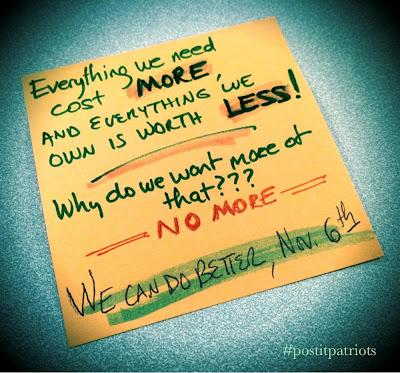 Everything we need
cost MORE,
AND EVERYTHING WE
OWN IS WORTH LESS!
Why do we want more of
that???
NO MORE
WE CAN DO BETTER, Nov. 6th
#postitpatriots